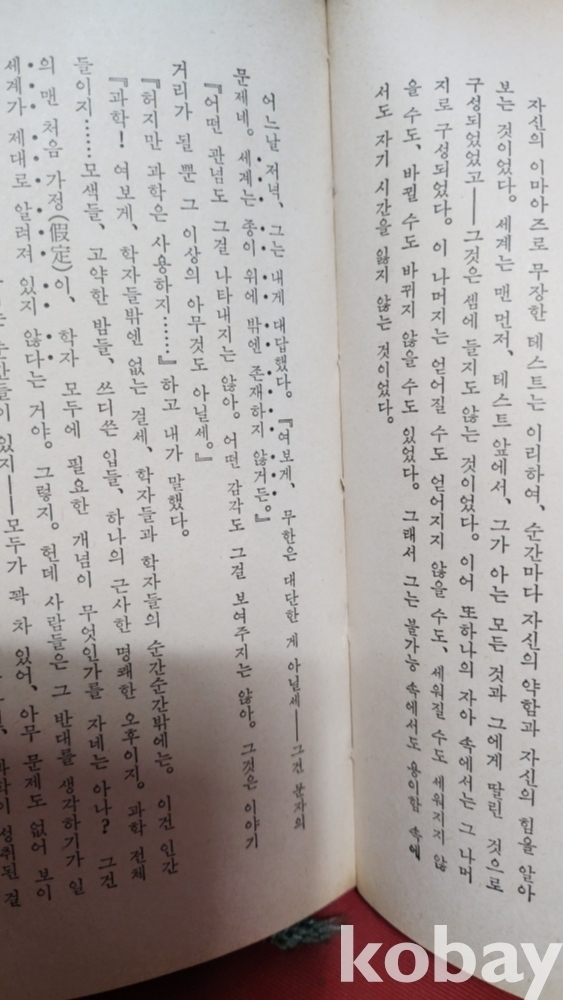 자신의 이마아즈로 무장한 테스트는 이리하여, 순간마다 자신의 약함과 자신의 힘을 알아
보는 것이었다. 세계는 맨 먼저, 테스트 앞에서, 그가 아는 모든 것과 그에게 딸린 것으로
구성되었었고──그것은 셈에 들지도 않는 것이었다. 이어 또하나의 자아 속에서는 그 나머
지로 구성되었다. 이 나머지는 얻어질 수도 얻어지지 않을 수도, 세워질 수도 세워지지 않
을 수도, 바뀔 수도 바뀌지 않을 수도 있었다. 그래서 그는 불가능 속에서도 용이함 속에
서도 자기 시간을 잃지 않는 것이었다.
어느날 저녁, 그는 내게 대답했다. 『여보게, 무한은 대단한 게 아닐세──그건 문자의
문제네. 세계는 종이 위에 밖엔 존재하지 않거든.』
『어떤 관념도 그걸 나타내지는 않아. 어떤 감각도 그걸 보여주지는 않아. 그것은 이야기
거리가 될 뿐 그 이상의 아무것도 아닐세.』
『허지만 과학은 사용하지……』하고 내가 말했다.
『과학! 여보게, 학자들밖엔 없는 걸세, 학자들과 학자들의 순간순간밖에는. 이건 인간
들이지……모색들, 고약한 밤들, 쓰디쓴 입들, 하나의 근사한 명쾌한 오후이지. 과학 전체
의 맨 처음 가정(假定)이, 학자 모두에 필요한 개념이 무엇인가를 자네는 아나? 그건
세계가 제대로 알려져 있지 않다는 거야. 그렇지. 헌데 사람들은 그 반대를 생각하기가 일
순간들이 있지──모두가 꽉 차 있어, 아무 문제도 없어 보이
성취된 걸
kobay